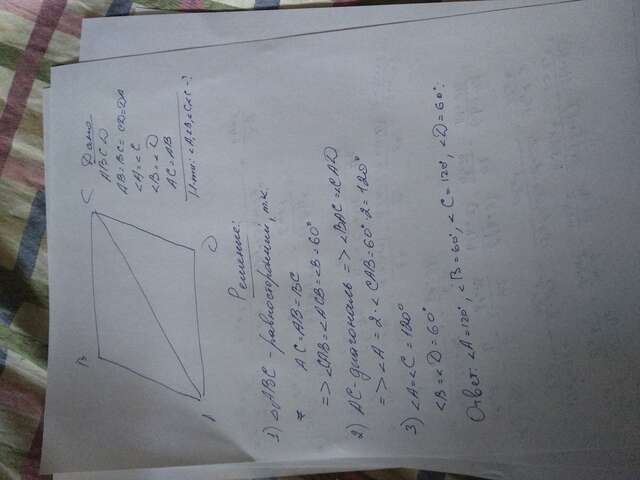 B
C
A
D
Дано
ABCD
AB=BC=CD=DA
∠A=∠C
∠B=∠D
AC=AB
Н-ти: ∠A,∠B,∠C -?
Решение:
1) △ABC - равносторонний, т.к.
AC=AB=BC
=> ∠CAB=∠ACB=∠B=60°
2) AC-диагональ => ∠BAC=∠CAD
=> ∠A = 2·∠CAB=60°·2=120°
3) ∠A=∠C=120°
∠B=∠D=60°
Ответ: ∠A=120°, ∠B=60°, ∠C=120°, ∠D=60°.